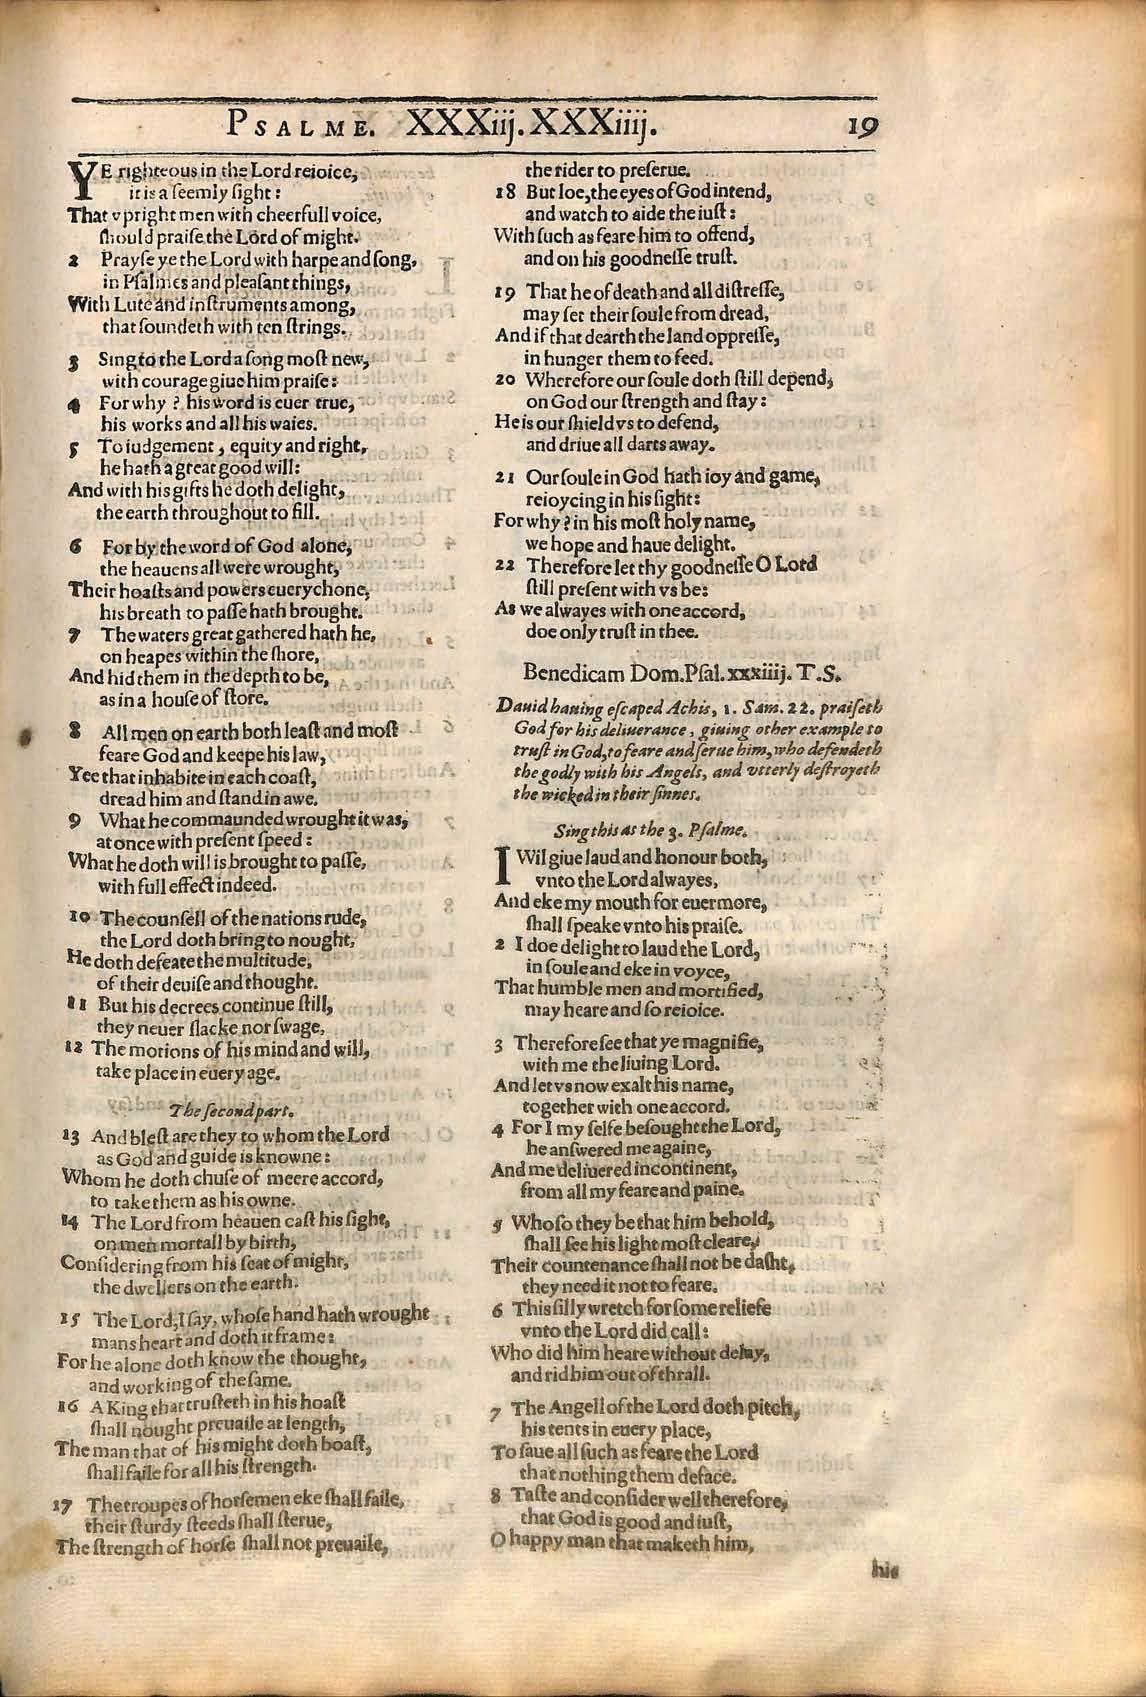 PSALME. XXXiij. XXXiiij. 19
YE righteous in the Lord reioice,
it is a ſeemly ſight:
That vpright men with cheerfull voice,
ſhould praiſe the Lord of might.
2 Prayſe ye the Lord with harpe and ſong,
in Pſalmes and pleaſant things,
With Lute and inſtruments among,
that ſoundeth with ten ſtrings.
3 Sing to the Lord a ſong moſt new,
with courage giue him praiſe:
4 For why? his word is euer true,
his works and all his waies.
5 To iudgement, equity and right,
he hath a great good will:
And with his gifts he doth delight,
the earth throughout to fill.
6 For by the word of God alone,
the heauens all were wrought,
Their hoaſts and powers euerychone,
his breath to paſſe hath brought.
7 The waters great gathered hath he,
on heapes within the ſhore,
And hid them in the depth to be,
as in a houſe of ſtore.
8 All men on earth both leaſt and moſt
feare God and keepe his law,
Yee that inhabite in each coaſt,
dread him and ſtand in awe.
9 What he commaunded wrought it was,
at once with preſent ſpeed:
What he doth will is brought to paſſe,
with full effect indeed.
10 The counſell of the nations rude,
the Lord doth bring to nought,
He doth defeate the multitude,
of their deuiſe and thought.
11 But his decrees continue ſtill,
they neuer ſlacke nor ſwage,
12 The motions of his mind and will,
take place in euery age.
The ſecond part.
13 And bleſt are they to whom the Lord
as God and guide is knowne:
Whom he doth chuſe of meere accord,
to take them as his owne.
14 The Lord from heauen caſt his ſight,
on men mortall by birth,
Conſidering from his ſeat of might,
the dwellers on the earth.
15 The Lord, I ſay, whoſe hand hath wrought
mans heart and doth it frame:
For he alone doth know the thought,
and working of the ſame.
16 A King that truſteth in his hoaſt
ſhall nought preuaile at length,
The man that of his might doth boaſt,
ſhall faile for all his ſtrength.
17 The troupes of horſemen eke ſhall faile,
their ſturdy ſteeds ſhall ſterue,
The ſtrength of horſe ſhall not preuaile,
the rider to preſerue.
18 But loe, the eyes of God intend,
and watch to aide the iuſt:
With ſuch as feare him to offend,
and on his goodneſſe truſt.
19 That he of death and all diſtreſſe,
may ſet their ſoule from dread,
And if that dearth the land oppreſſe,
in hunger them to feed.
20 Wherefore our ſoule doth ſtill depend,
on God our ſtrength and ſtay:
He is our ſhield vs to defend,
and driue all darts away.
21 Our ſoule in God hath ioy and game,
reioycing in his ſight:
For why? in his moſt holy name,
we hope and haue delight.
22 Therefore let thy goodneſſe O Lord
ſtill preſent with vs be:
As we alwayes with one accord,
doe only truſt in thee.
Benedicam Dom. Pſal. xxxiiij. T.S.
Dauid hauing eſcaped Achis, 1. Sam. 22. praiſeth
God for his deliuerance, giuing other example to
truſt in God, to feare and ſerue him, who defendeth
the godly with his Angels, and vtterly deſtroyeth
the wicked in their ſinnes.
Sing this as the 3. Pſalme.
I Wil giue laud and honour both,
vnto the Lord alwayes,
And eke my mouth for euermore,
ſhall ſpeake vnto his praiſe.
2 I doe delight to laud the Lord,
in ſoule and eke in voyce,
That humble men and mortified,
may heare and ſo reioice.
3 Therefore ſee that ye magnifie,
with me the liuing Lord.
And let vs now exalt his name,
together with one accord.
4 For I my ſelfe beſought the Lord,
he anſwered me againe,
And me deliuered incontinent,
from all my feare and paine.
5 Who ſo they be that him behold,
ſhall ſee his light moſt cleare,
Their countenance ſhall not be daſht,
they need it not to feare.
6 This ſilly wretch for ſome reliefe
vnto the Lord did call:
Who did him heare without delay,
and rid him out of thrall.
7 The Angell of the Lord doth pitch,
his tents in euery place,
To ſaue all ſuch as feare the Lord
that nothing them deface.
8 Taſte and conſider well therefore,
that God is good and iuſt,
O happy man that maketh him,
his